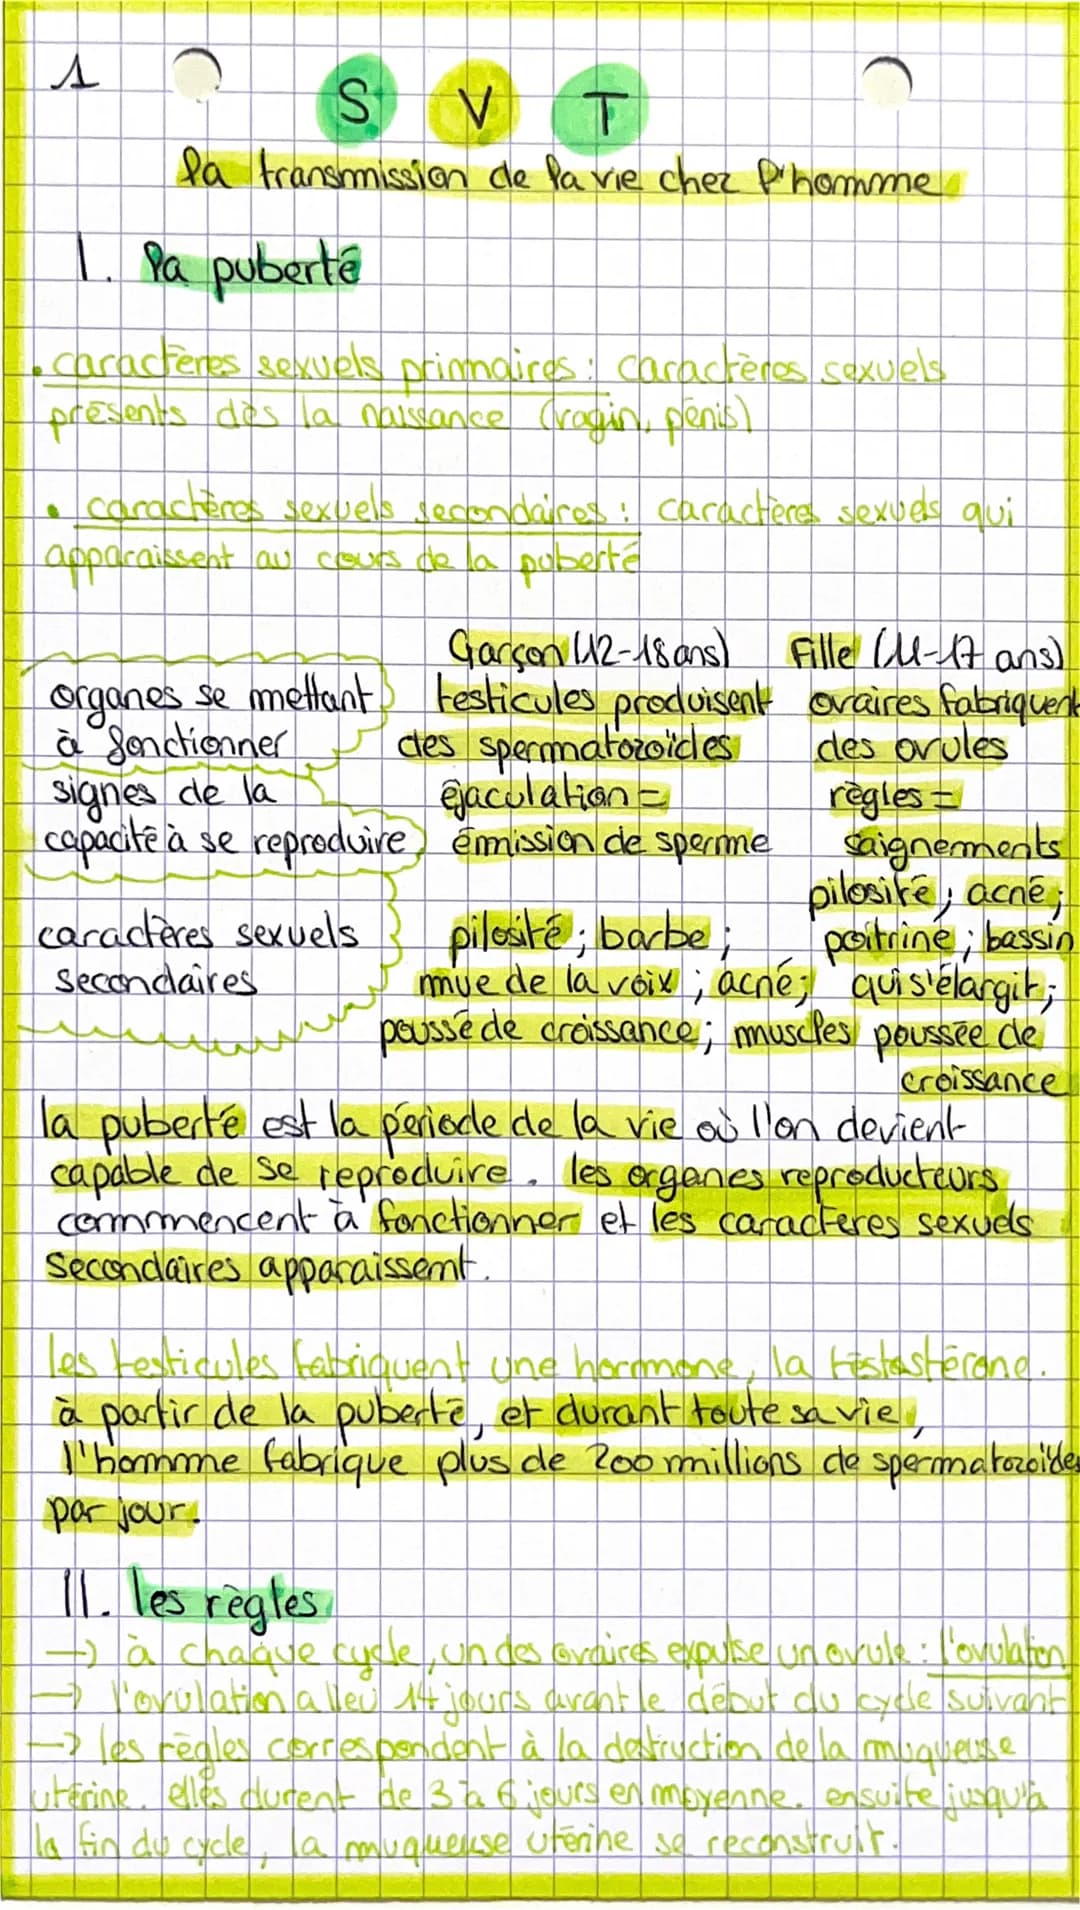 1
S V T
la transmission de la vie chez l'homme
I. la puberté
• caractères sexuels primaires : caractères sexuels
présents dès la naissance (vagin, pénis)
• caractères sexuels secondaires : caractères sexuels qui
apparaissent au cours de la puberté
Garçon (12-18 ans) Fille (11-17 ans)
organes se mettant testicules produisent ovaires fabriquent
à fonctionner des spermatozoïdes des ovules
signes de la éjaculation = règles =
capacité à se reproduire émission de sperme saignements
pilosité ; acné ;
caractères sexuels pilosité ; barbe ; poitrine ; bassin
secondaires mue de la voix ; acné ; qui s'élargit ;
poussé de croissance ; muscles poussée de
croissance
la puberté est la période de la vie où l'on devient
capable de se reproduire. les organes reproducteurs
commencent à fonctionner et les caractères sexuels
secondaires apparaissent.
les testicules fabriquent une hormone, la testostérone.
à partir de la puberté, et durant toute sa vie,
l'homme fabrique plus de 200 millions de spermatozoïdes
par jour.
II. les règles
→ à chaque cycle, un des ovaires expulse un ovule : l'ovulation
→ l'ovulation a lieu 14 jours avant le début du cycle suivant
→ les règles correspondent à la destruction de la muqueuse
utérine. elles durent de 3 à 6 jours en moyenne. ensuite jusqu'à
la fin du cycle, la muqueuse utérine se reconstruit.